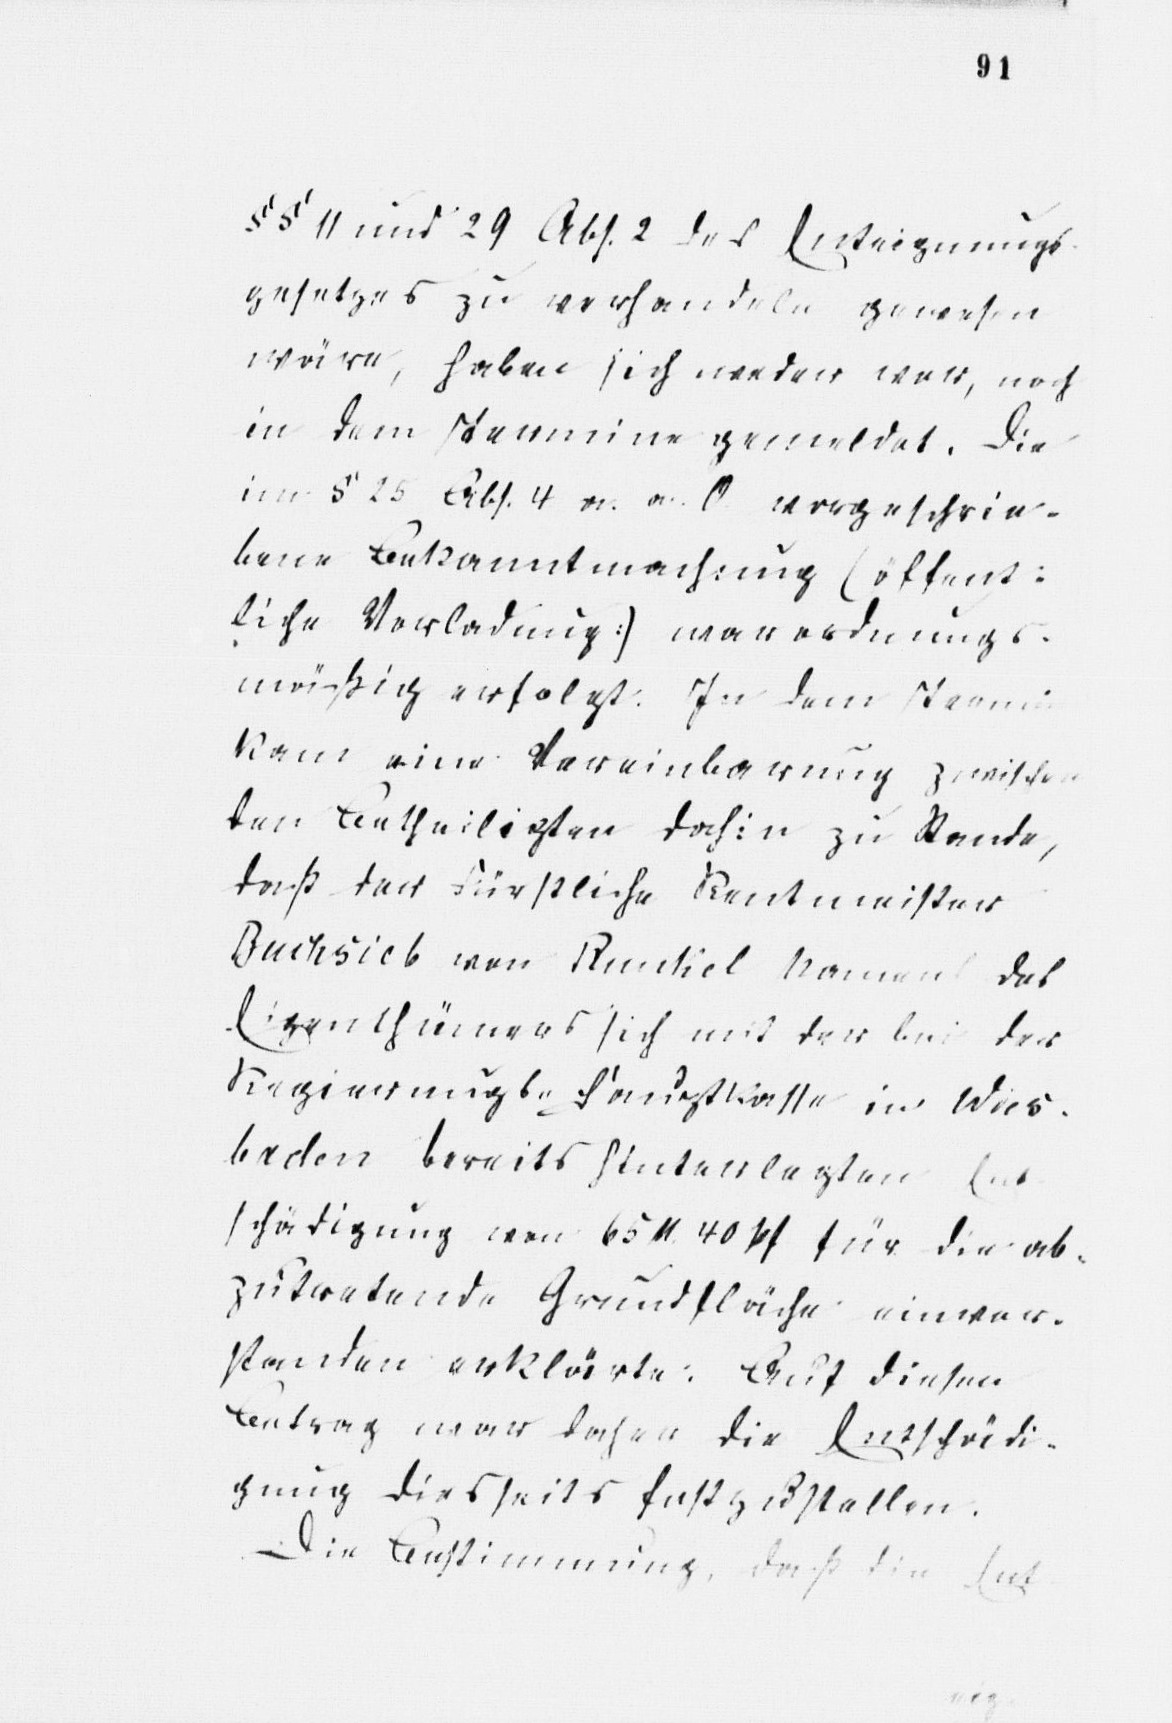 91
§§ 11 und 29 Abs. 2 des Enteignungs-
gesetzes zu verhandeln gewesen
wäre, haben sich weder vor, noch
in dem Termine gemeldet. Die
im § 25 Abs. 4 a. a. O. vorgeschrie-
bene Bekanntmachung (öffent:
liche Vorladung:) war ordnungs-
mäßig erfolgt. In dem Termin
kam eine Vereinbarung zwischen
den Betheiligten dahin zu Stande,
daß der Fürstliche Rentmeister
Buchsieb von Runkel Namens des
Eigenthümers sich mit der bei der
Regierungs-Hauptkasse in Wies-
baden bereits hinterlegten Ent-
schädigung von 65 M. 40 Pf für die ab-
zutretende Grundfläche einver-
standen erklärte. Auf diesen
Betrag war daher die Entschädi-
gung diesseits festzustellen.
Die Bestimmung, daß die Ent